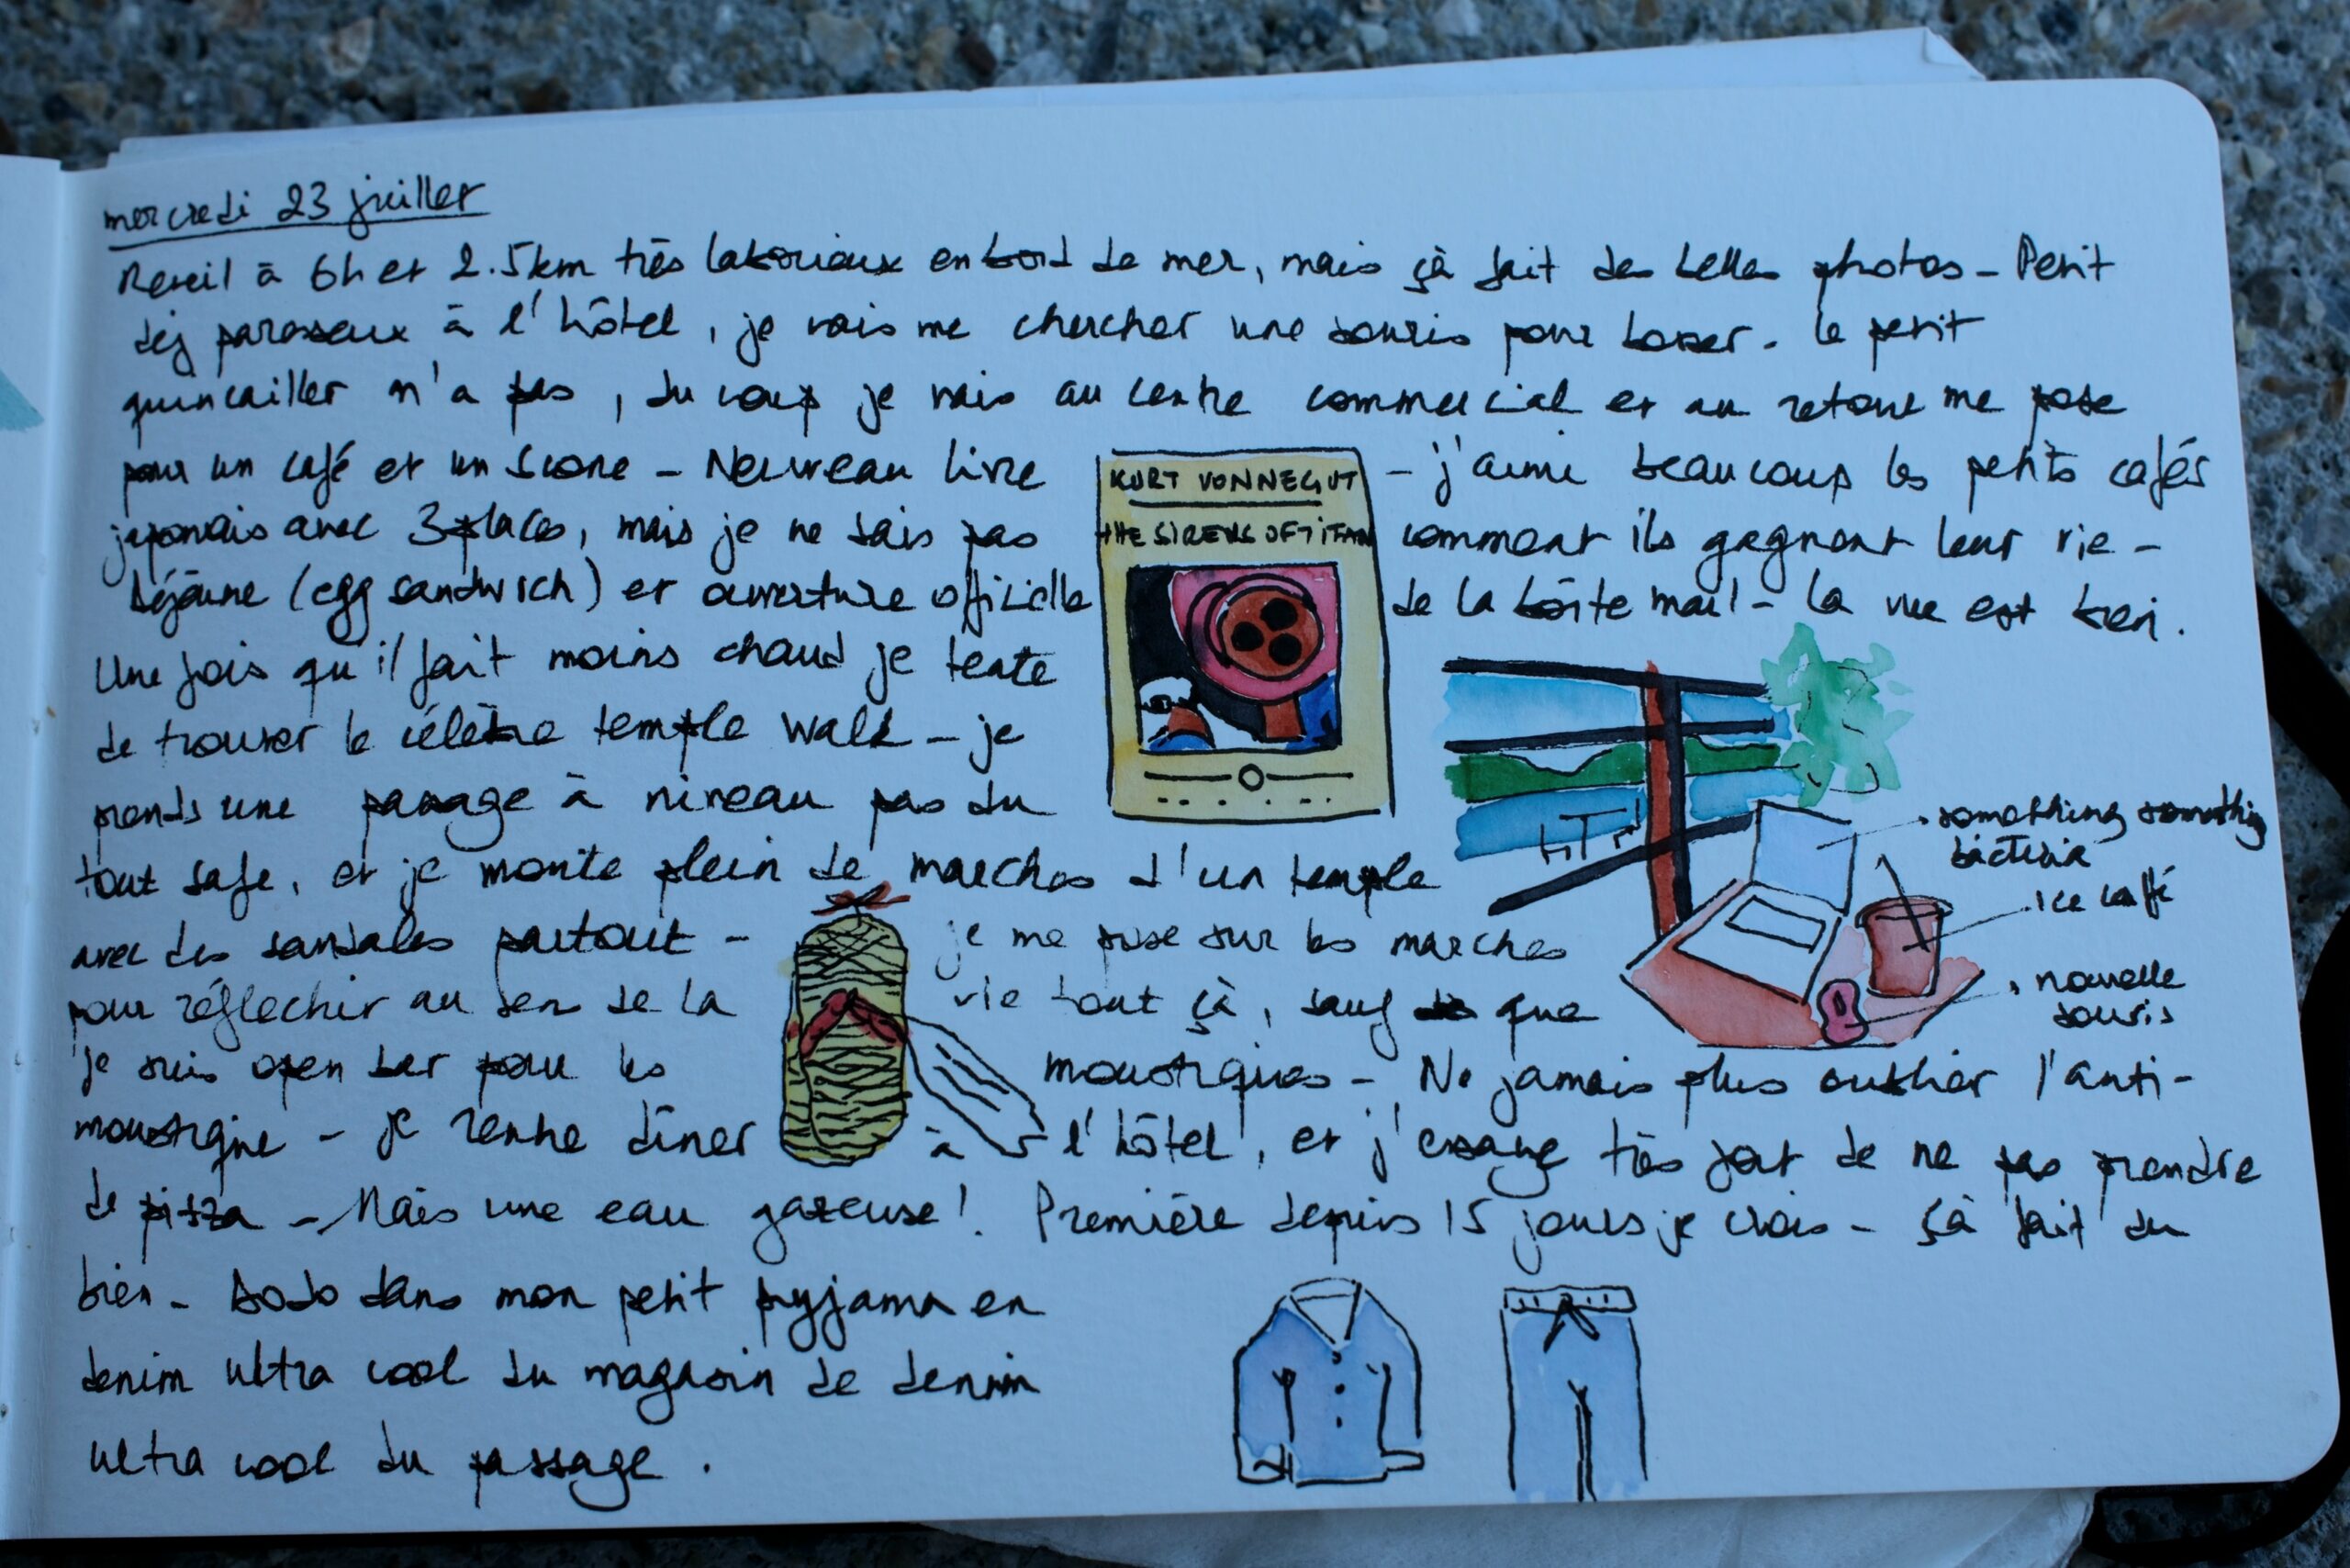 mercredi 23 juillet
Reveil à 6h et 2.5km très laborieux en bord de mer, mais çà fait des belles photos - Petit
déj paresseux à l'hôtel, je vais me chercher une souris pour bosser. Le petit
quincailler n'a pas, du coup je vais au centre commercial et au retour me pose
pour un café et un scone - Nouveau livre
KURT VONNEGUT
THE SIRENS OF TITAN
- j'aime beaucoup les petits cafés
japonais avec 3 places, mais je ne sais pas comment ils gagnent leur vie -
Déjeune (egg sandwich) et ouverture officielle de la boîte mail - la vue est bien.
Une fois qu'il fait moins chaud je tente
de trouver le célèbre temple walk - je
prends une passage à niveau pas du
tout safe, et je monte plein de marches d'un temple
avec des sandales partout - je me pose sur les marches
pour réflechir au sen de la vie tout çà, sauf que
je suis open bar pour les moustiques - Ne jamais plus oublier l'anti-
moustique - je rentre dîner à l'hôtel, et j'essaye très fort de ne pas prendre
de pizza - Mais une eau gazeuse! Première depuis 15 jours je crois - çà fait du
bien - Dodo dans mon petit pyjama en
denim ultra cool du magasin de denim
ultra cool du passage.
something something
bacteria
ice caffé
nouvelle
souris